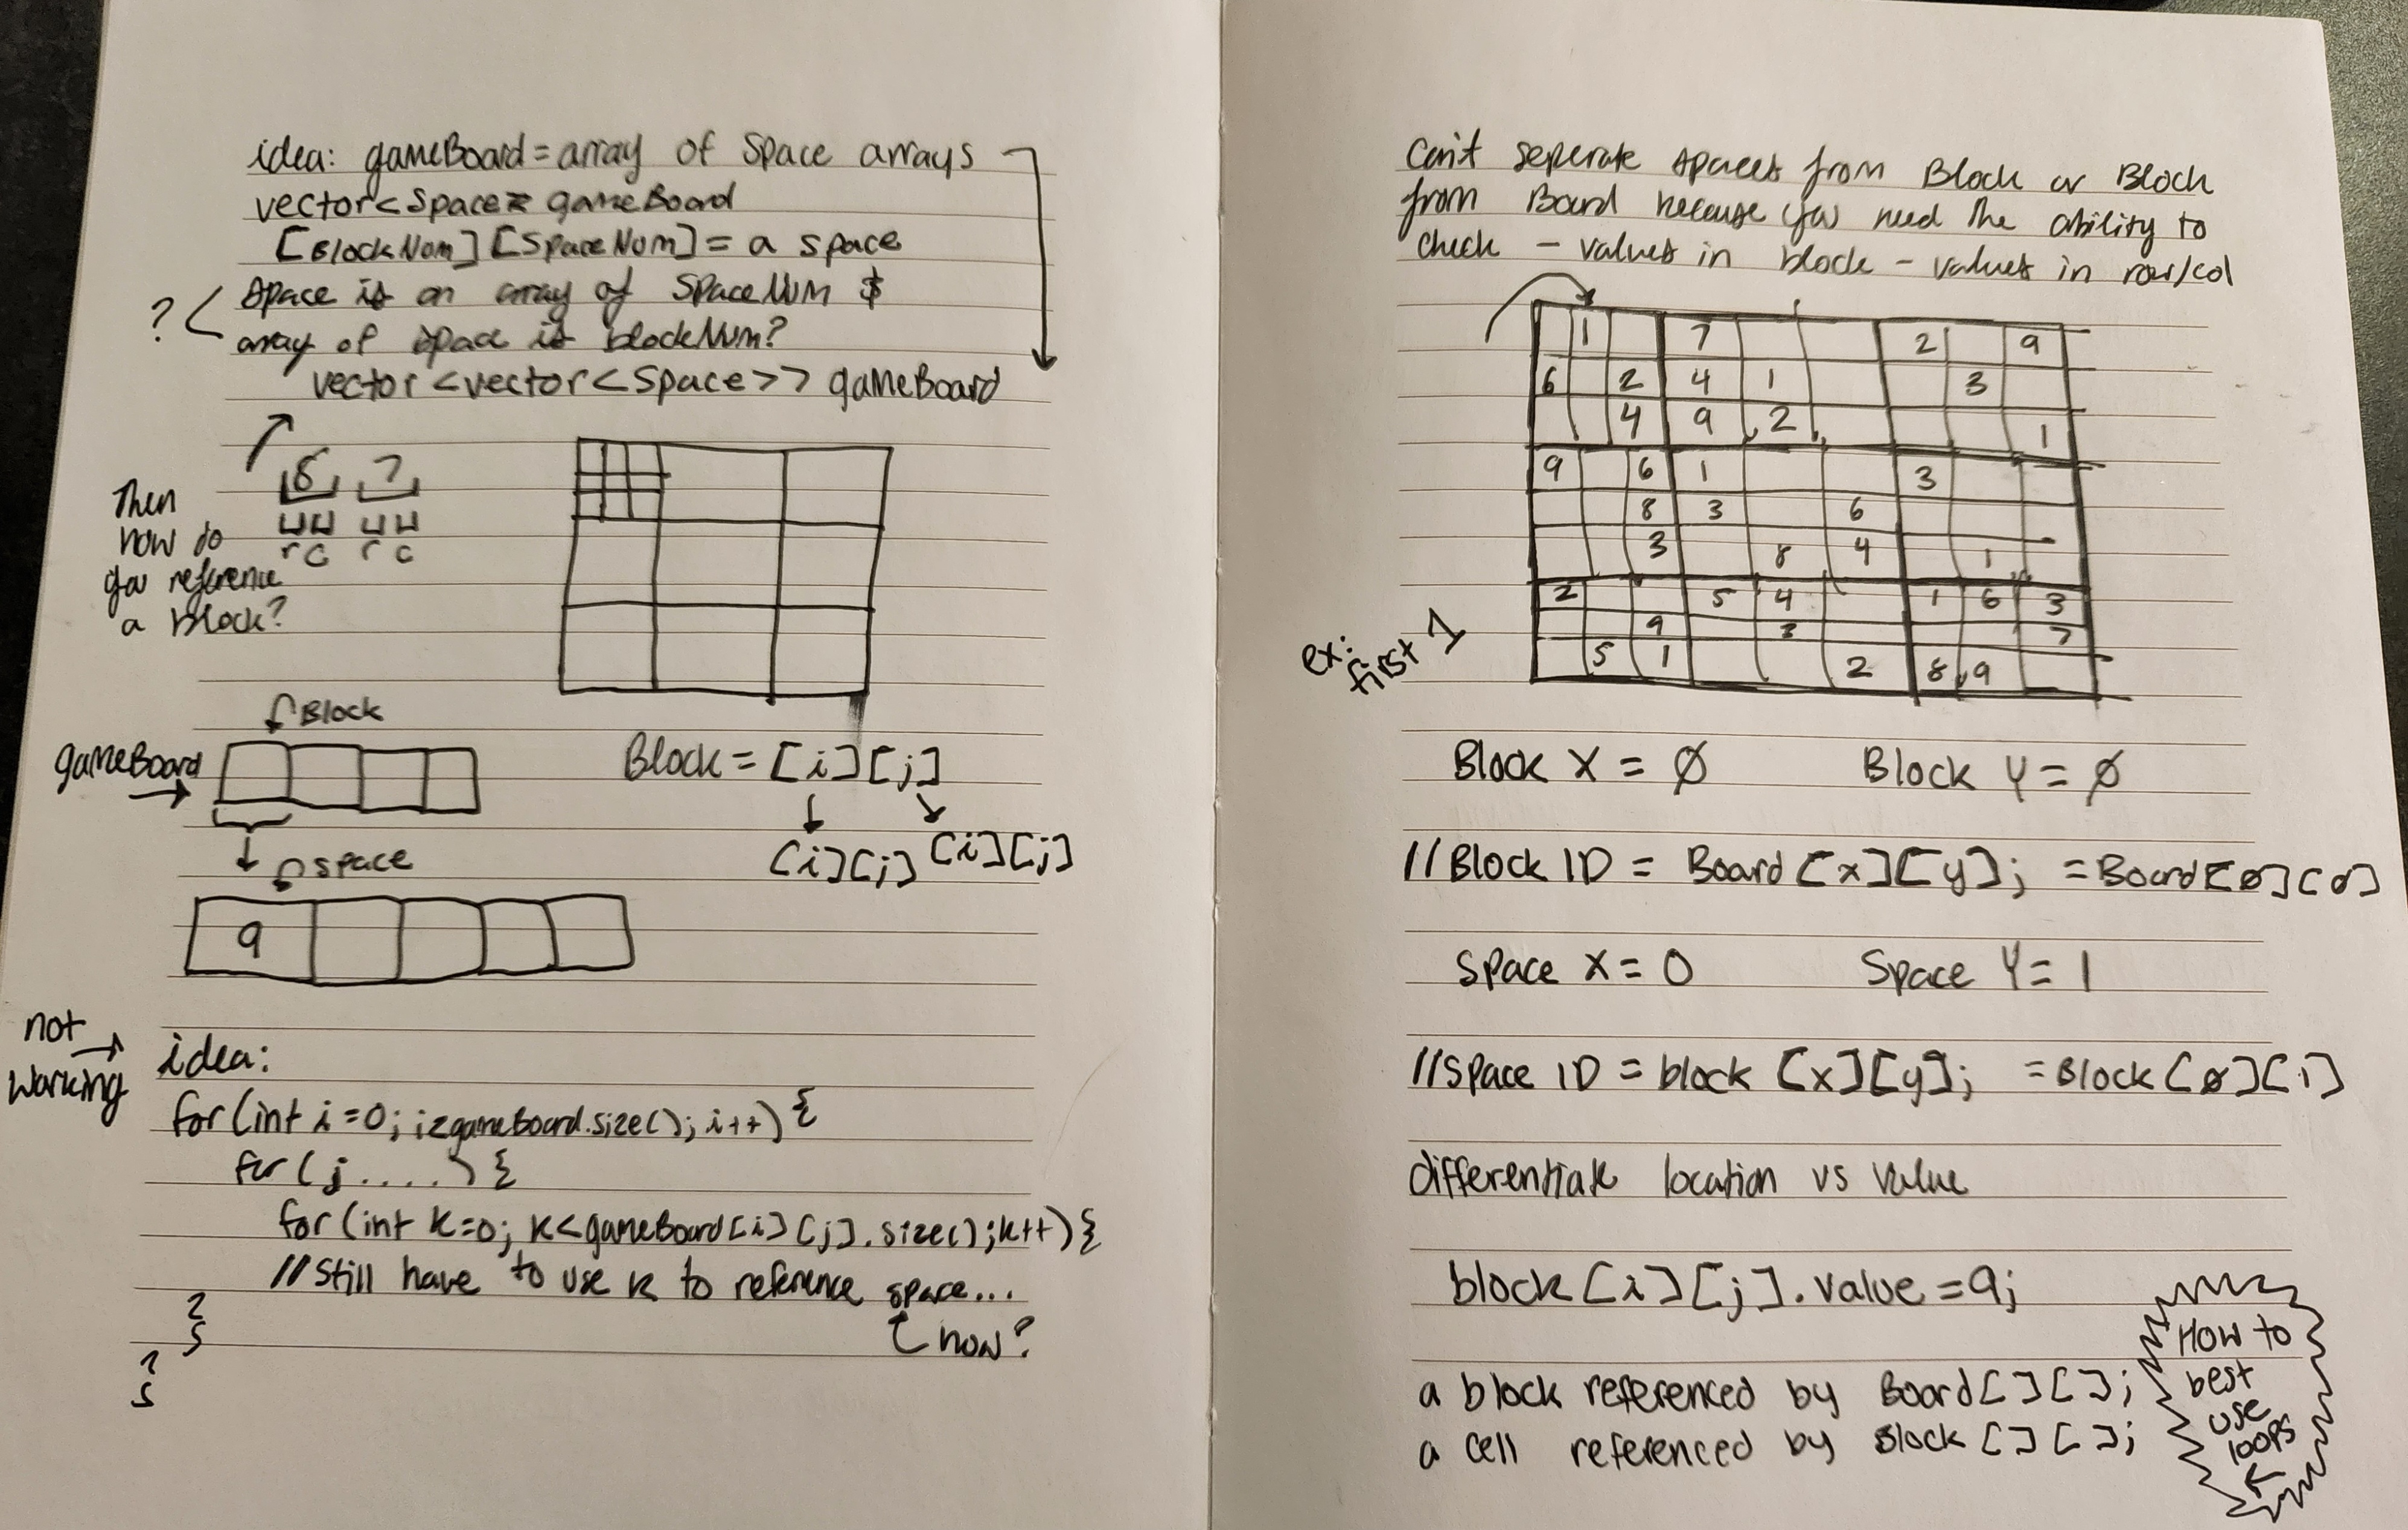 idea: gameBoard = array of Space arrays
vector<Space> gameBoard
[BlockNum][SpaceNum] = a space
space is an array of SpaceNum &
? < array of space is blockNum?
vector <vector<Space>> gameBoard
6 7
r c r c
Then
how do
you reference
a block?
Block
gameBoard
Block = [i][j]
[i][j] [i][j]
space
9
not
working
idea:
for (int i=0; i<gameBoard.size(); i++) {
for (j .....) {
for (int k=0; k<gameBoard[i][j].size(); k++) {
//still have to use k to reference space...
how?
}
}
can't seperate spaces from Block or Block
from Board because you need the ability to
check - values in block - values in row/col
1 7 2 9
6 2 4 1 3
4 9 2 1
9 6 1 3
8 3 6
3 8 4 1
2 5 4 1 6 3
9 3 7
5 1 2 8 9
ex:
first 1
Block X = Ø Block Y = Ø
//Block ID = Board[x][y]; = Board[Ø][Ø]
Space X = 0 Space Y = 1
//Space ID = block [x][y]; = Block[Ø][1]
differentiate location vs value
block[i][j].value = 9;
a block referenced by Board[][];
a cell referenced by Block[][];
How to
best
use
loops